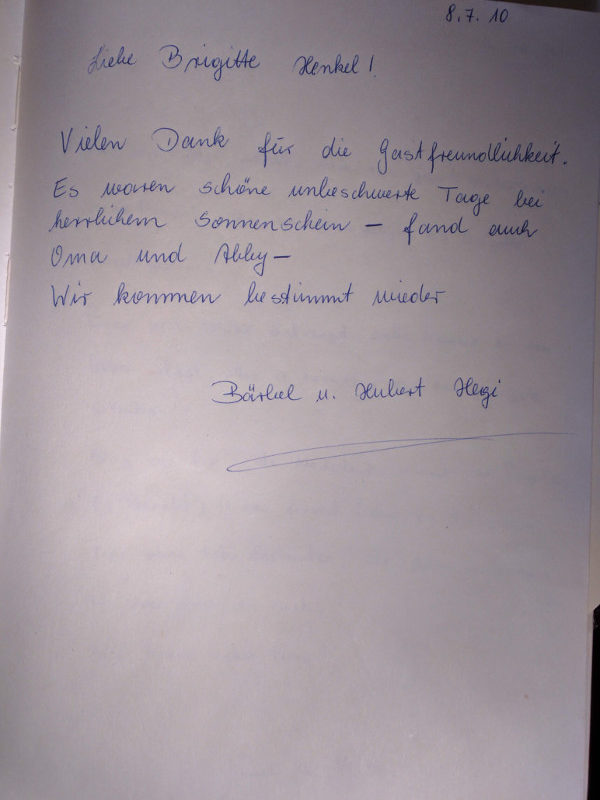 8.7.10
Liebe Brigitte Henkel!
Vielen Dank für die Gastfreundlichkeit.
Es waren schöne unbeschwerte Tage bei
herrlichem Sonnenschein – fand auch
Oma und Abby –
Wir kommen bestimmt wieder
Bärbel u. Hubert